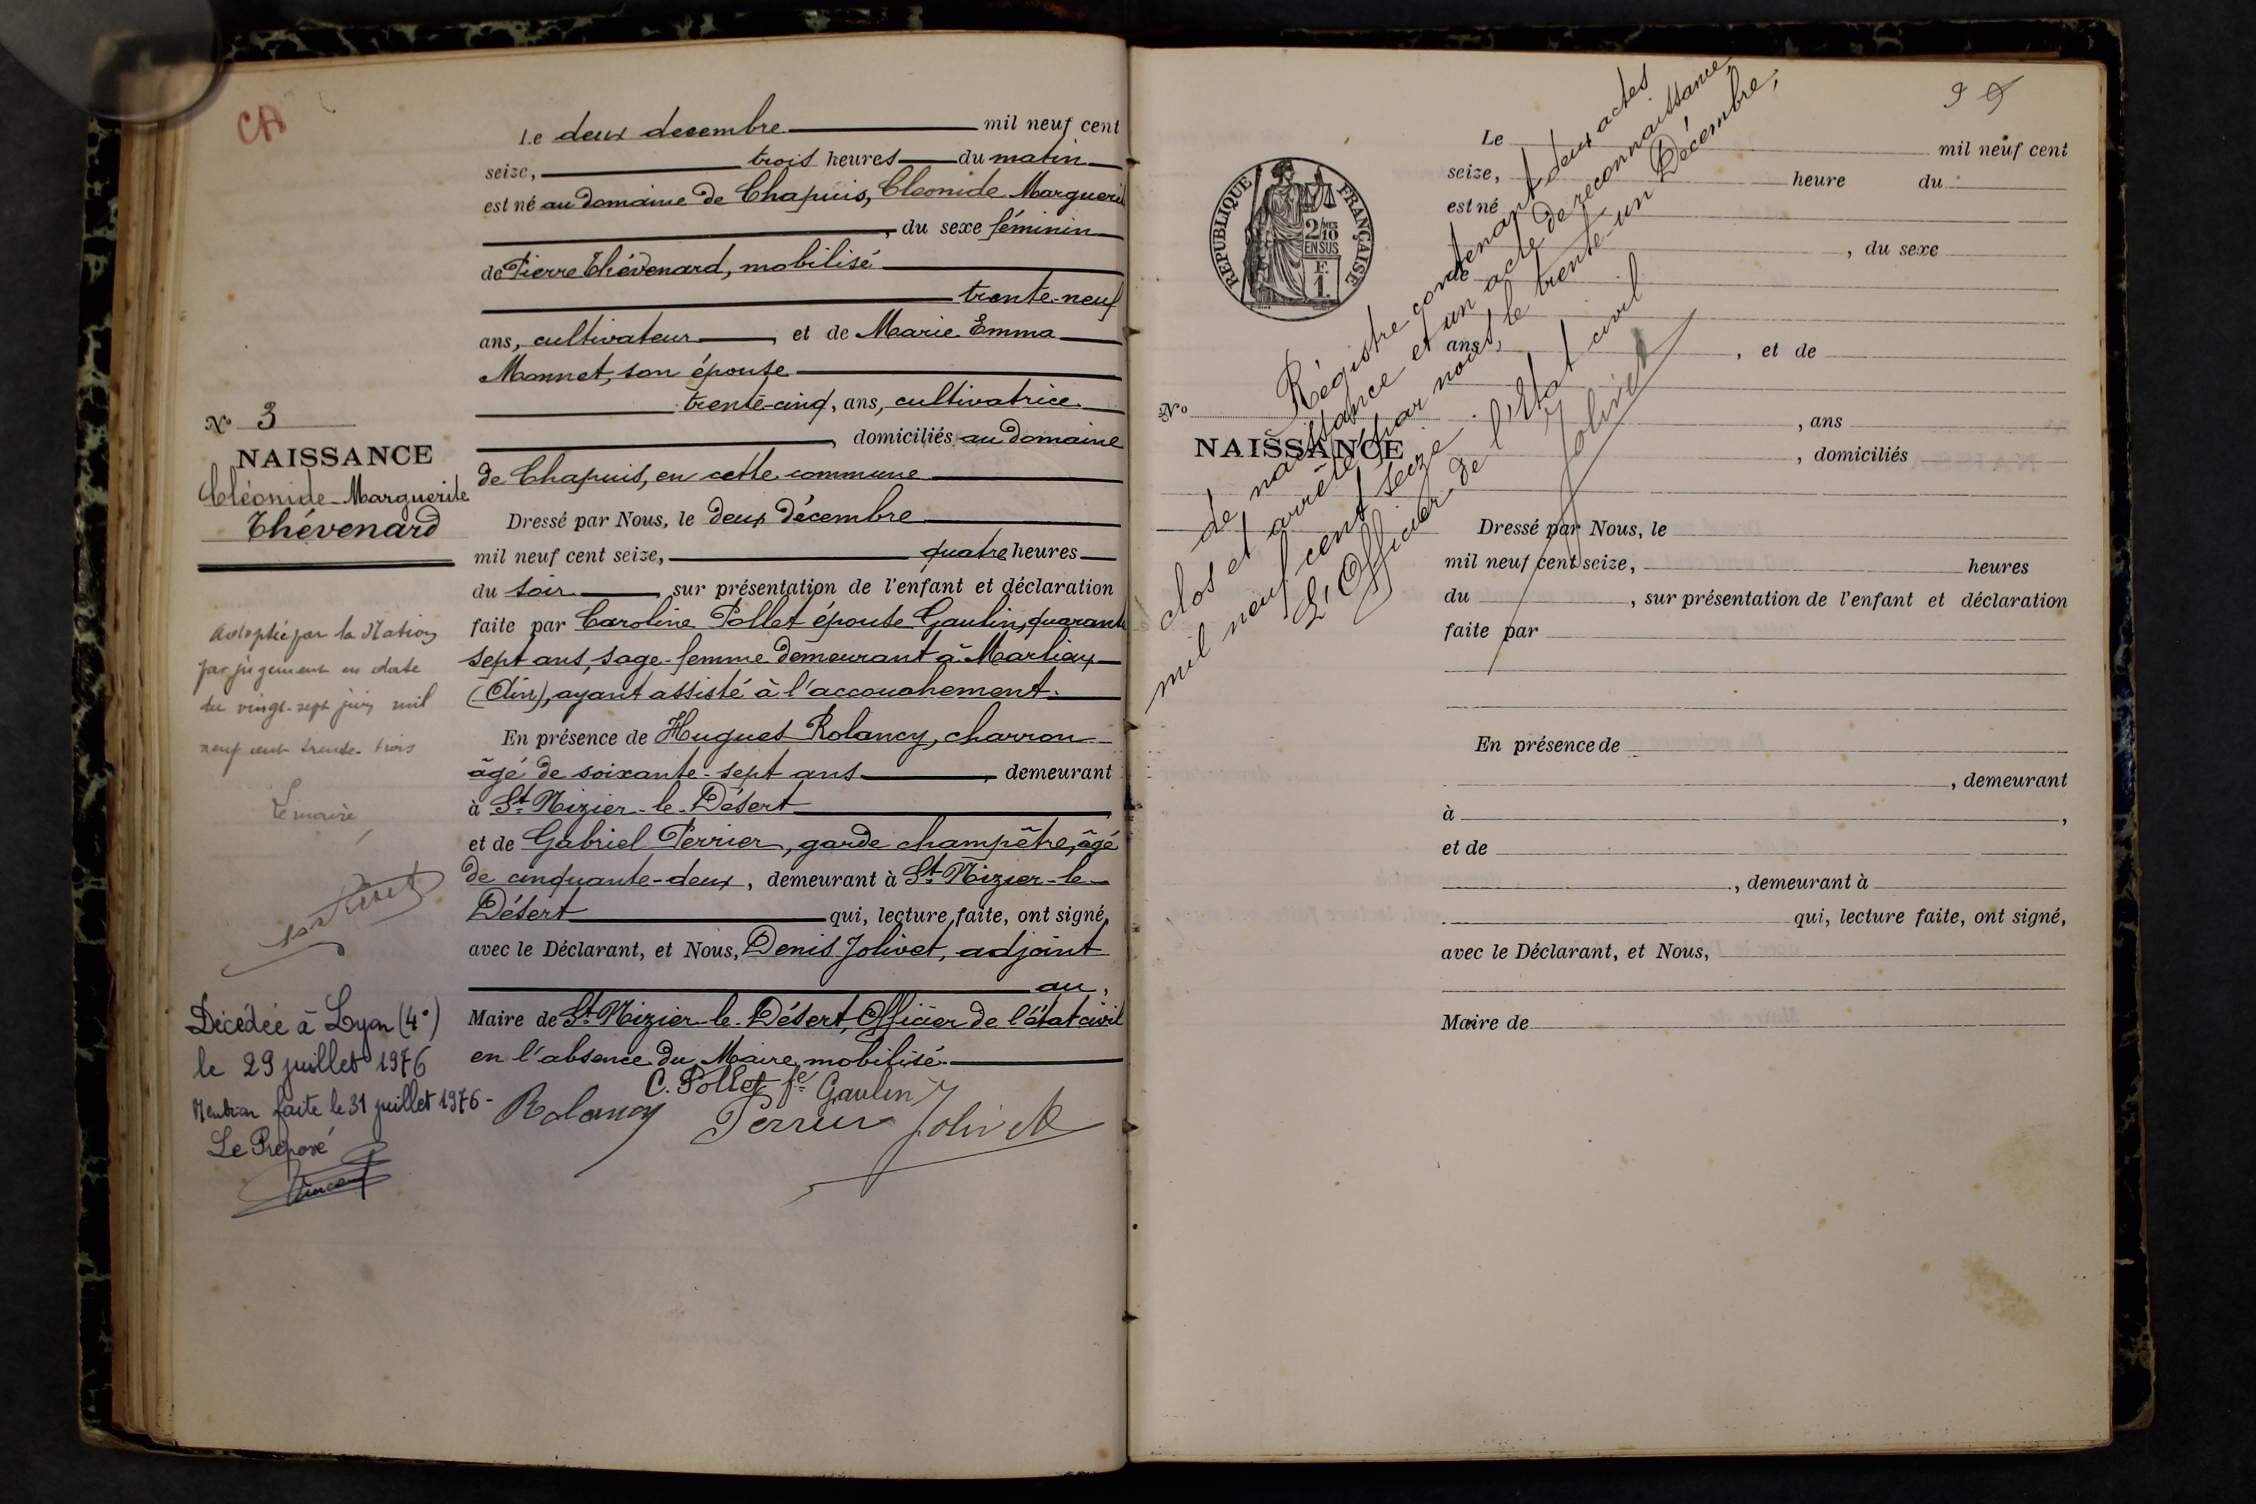 CA
Le deux decembre mil neuf cent
seize, trois heures du matin
est né au domaine de Chapuis, Cleonide Marguerit
, du sexe féminin
de Pierre Thévenard, mobilisé
trente-neuf
ans, cultivateur, et de Marie Emma
Monnet, son épouse
trente-cinq, ans, cultivatrice
, domiciliés au domaine
de Chapuis, en cette commune
Dressé par Nous, le deux décembre
mil neuf cent seize, quatre heures
du soir, sur présentation de l'enfant et déclaration
faite par Caroline Pollet épouse Gaulin, quarante
sept ans, sage-femme demeurant à Marlieux
(Ain), ayant assisté à l'accouchement.
En présence de Hugues Rolancy, charron
âgé de soixante-sept ans, demeurant
à St Nizier-le-Désert
et de Gabriel Perrier, garde champêtre, âgé
de cinquante-deux, demeurant à St Nizier-le-
Désert qui, lecture faite, ont signé,
avec le Déclarant, et Nous, Denis Jolivet, adjoint
au,
Maire de St Nizier-le-Désert, Officier de l'état civil
en l'absence du Maire mobilisé.
C. Pollet fe Gaulin
Rolancy Perrier Jolivet
No 3
NAISSANCE
Cléonide Marguerite
Thévenard
Adoptée par la Nation
par jugement en date
du vingt-sept juin mil
neuf cent trente-trois
Le maire,
Décédée à Lyon (4e)
le 29 juillet 1976
Mention faite le 31 juillet 1976-
Le Préposé
Vincent
9
RÉPUBLIQUE FRANÇAISE
2/10
EN SUS
F.
1.
No
NAISSANCE
Le mil neuf cent
seize, heure du
est né
, du sexe
de
ans, , et de
, ans
, domiciliés
Dressé par Nous, le
mil neuf cent seize, heures
du , sur présentation de l'enfant et déclaration
faite par
En présence de
, demeurant
à ,
et de
, demeurant à
qui, lecture faite, ont signé,
avec le Déclarant, et Nous,
Maire de
Régistre contenant deux actes
de naissance et un acte de reconnaissance,
clos et arrêté par nous, le trente-un Décembre,
mil neuf cent seize.
L'Officier de l'état civil
Jolivet